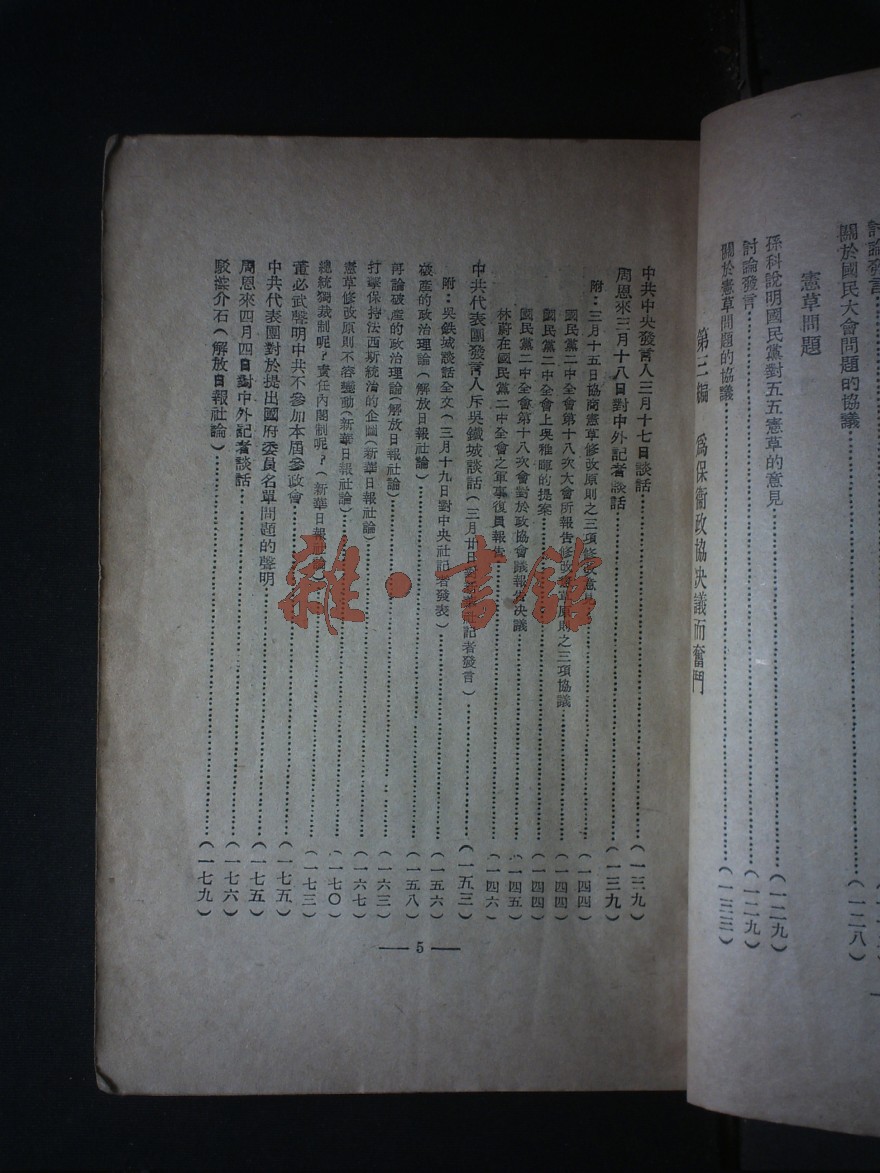 討論發言
關於國民大會問題的協議……(一二八)
憲草問題
孫科說明國民黨對五五憲草的意見……(一二九)
討論發言……(一二九)
關於憲草問題的協議……(一三三)
第三編 爲保衞政協決議而奮鬥
中共中央發言人三月十七日談話……(一三九)
周恩來三月十八日對中外記者談話……(一三九)
附：三月十五日協商憲草修改原則之三項修改意見……(一四四)
國民黨二中全會第十八次大會所報告修改憲草原則之三項協議……(一四四)
國民黨二中全會上吳雅暉的提案……(一四四)
國民黨二中全會第十八次會對於政協會議報告決議……(一四五)
林蔚在國民黨二中全會之軍事復員報告……(一四六)
中共代表團發言人斥吳鐵城談話(三月廿日對新華社記者發言)……(一五三)
附：吳鉄城談話全文(三月十九日對中央社記者發表)……(一五六)
破産的政治理論(解放日報社論)……(一五八)
再論破産的政治理論(解放日報社論)……(一六三)
打擊保持法西斯統治的企圖(新華日報社論)……(一六七)
憲草修改原則不容變動(新華日報社論)……(一七〇)
總統獨裁制呢？責任內閣制呢？(新華日報社論)……(一七三)
董必武聲明中共不參加本屆參政會……(一七五)
中共代表團對於提出國府委員名單問題的聲明……(一七五)
周恩來四月四日對中外記者談話……(一七六)
駁蔣介石(解放日報社論)……(一七九)
— 5 —
雜·書館